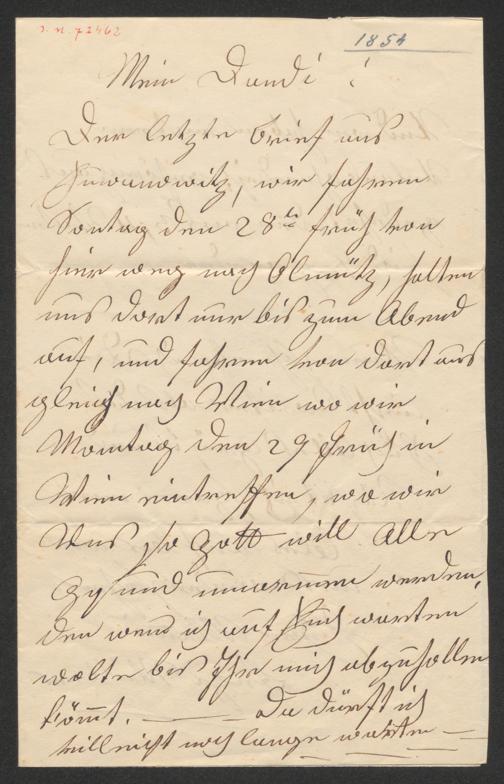 J. N. 72462
1854
Mein Dandi !
Der letzte Brief aus
wir fahren
Sontag den 28te früh von
hier weg nach Olmütz, halten
uns dort nur bis zum Abend
auf, und fahren von dort aus
gleich nach Wien wo wir
Montag den 29 früh in
Wien eintreffen, wo wir
Uns so Gott will Alle
gesund umarmen werden,
den wenn ich auf Euch warten
wolte bis Ihr mich abzuhollen
kömmt. — Da dürft ich
villeicht noch lange warten —